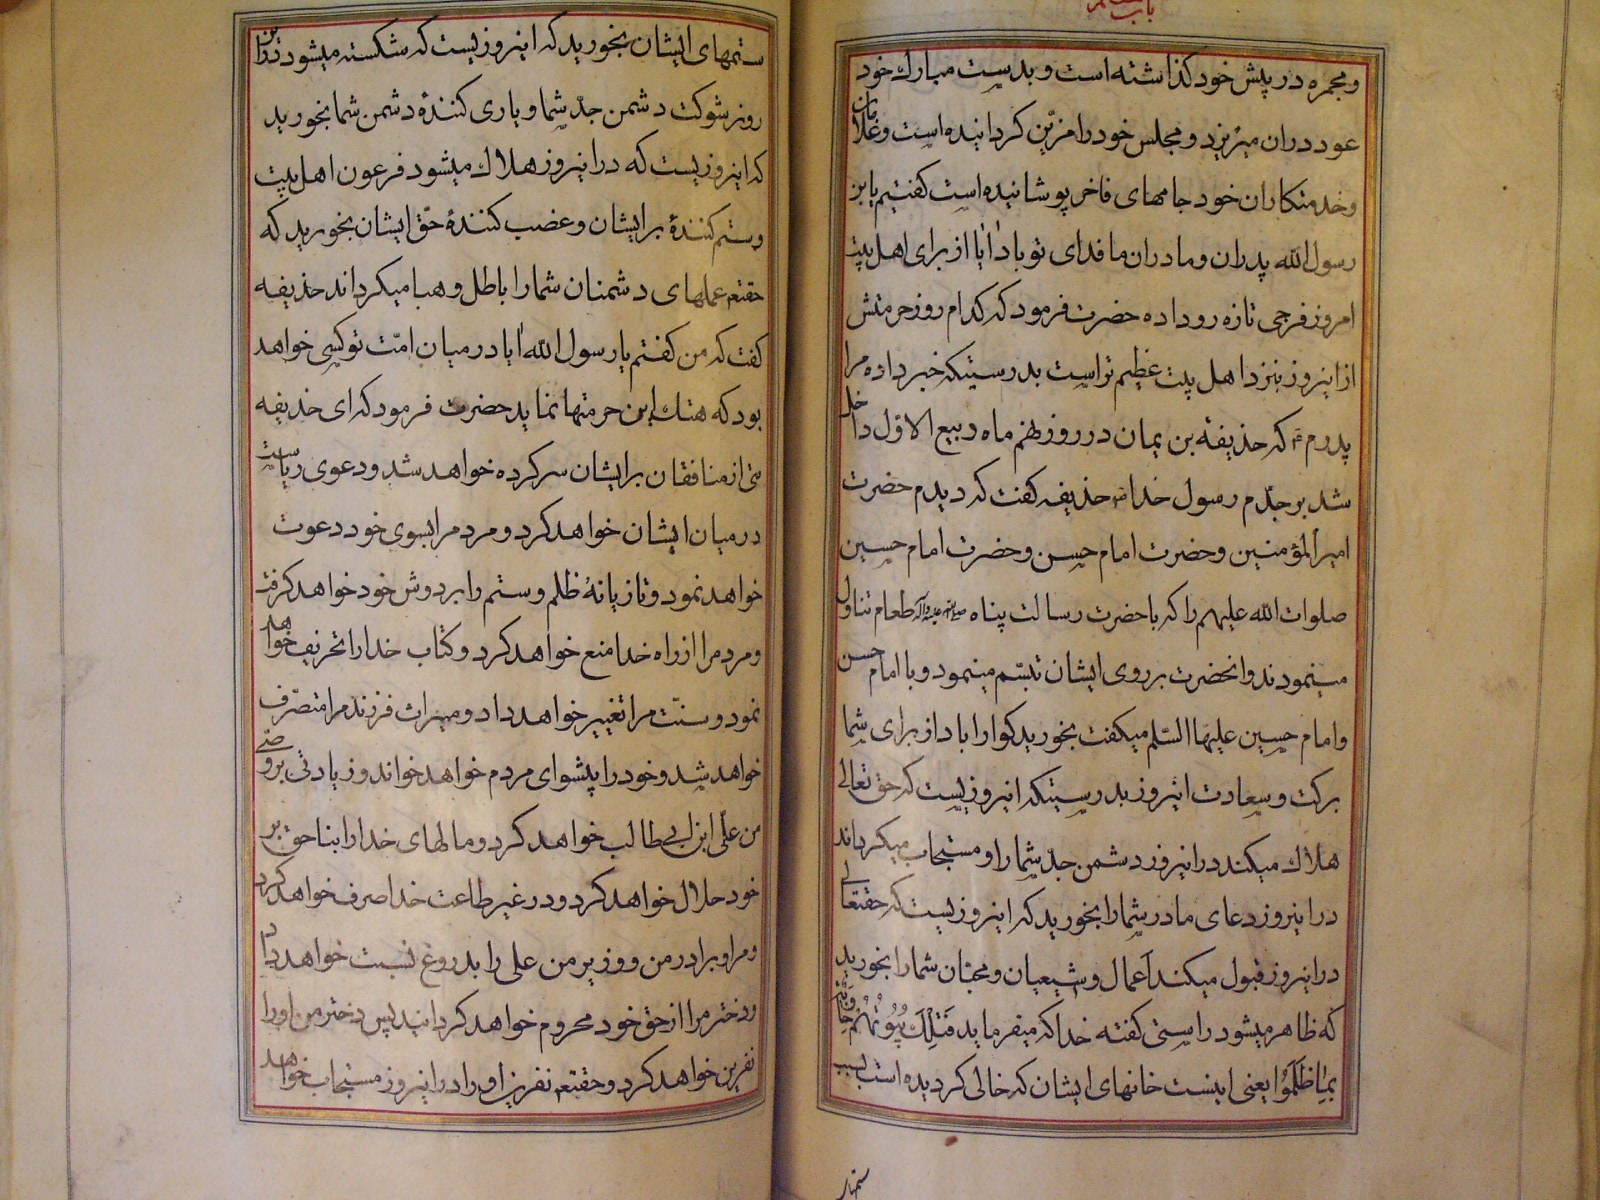 باب
ومجمره در پیش خود کذاشته است و بدست مبارك خود
عود دران میریزد و مجلس خود را مزّین کردانیده است وغلامان
وخدمتکاران خود جامهای فاخر پوشانیده است کفتیم یابن
رسول الله پدران ومادران ما فدای تو باد اٰیا از برای اهل بیت
امروز فرجی تازه روداده حضرت فرمود که کدام روز حرمتش
از اینروز بنزد اهل بیت عظیم تر است بدرستیکه خبر داده مرا
پدرم که حذیفه بن یمان در روز نهم ماه ربیع الاوّل داخل
شد بر جدّم رسول خدا حذیفه کفت که دیدم حضرت
امیر المؤمنین وحضرت امام حسن وحضرت امام حسین
صلوات الله علیهم را که با حضرت رسالت پناه صلی الله علیه وآله طعام تناول
مینمودند وانحضرت بر روی ایشان تبسّم مینمود و با امام حسن
وامام حسین علیهما السّلم میکفت بخورید کوارا باد از برای شما
برکت وسعادت اینروز بدرستیکه اینروزیست که حق تعالی
هلاك میکند در اینروز دشمن جدّ شما را و مستجاب میکرداند
در اینروز دعای مادر شما را بخورید که اینروزیست که حقتعالی
در اینروز قبول میکند اعمال و شیعیان ومحبّان شما را بخورید
که ظاهر میشود راستی کفته خدا که میفرماید فَتِلْكَ بُیُوتُهُمْ خاوِیَةً
بِمٰا ظَلَمُوا یعنی اینست خانهای ایشان که خالی کردیده است بسبب
ستمهای
ستمهای ایشان بخورید که اینروزیست که شکسته میشود دراین
روز شوکت دشمن جدّ شما و یاری کنندهٔ دشمن شما بخورید
که اینروزیست که در اینروز هلاك میشود فرعون اهل بیت
وستم کنندهٔ بر ایشان و غضب کنندهٔ حقّ ایشان بخورید که
حقتعم عملهای دشمنان شما را باطل و هبا میکرداند حذیفه
کفت که من کفتم یا رسول الله اٰیا در میان امّت تو کسی خواهد
بود که هتك این حرمتها نماید حضرت فرمود که ای حذیفه
بتی از منافقان بر ایشان سرکرده خواهد شد و دعوی ریاست
در میان ایشان خواهد کرد و مردم را بسوی خود دعوت
خواهد نمود و تازیانهٔ ظلم وستم را بر دوش خود خواهد کرفت
ومردم را از راه خدا منع خواهد کرد و کتاب خدا را تحریف خواهد
نمود و سنّت مرا تغییر خواهد داد و میراث فرزند مرا متصرّف
خواهد شد و خود را پیشوای مردم خواهد خواند و زیادتی بر وصّی
من علی ابن ابی طالب خواهد کرد و مالهای خدا را بنا حق بر
خود حلال خواهد کرد و در غیر طاعت خدا صرف خواهد کرد
ومرا و برادر من و وزیر من علی را بدروغ نسبت خواهد داد
ودختر مرا از حق خود محروم خواهد کردانید پس دختر من او را
نفرین خواهد کرد و حقتعم نفرین او را در اینروز مستجاب خواهد